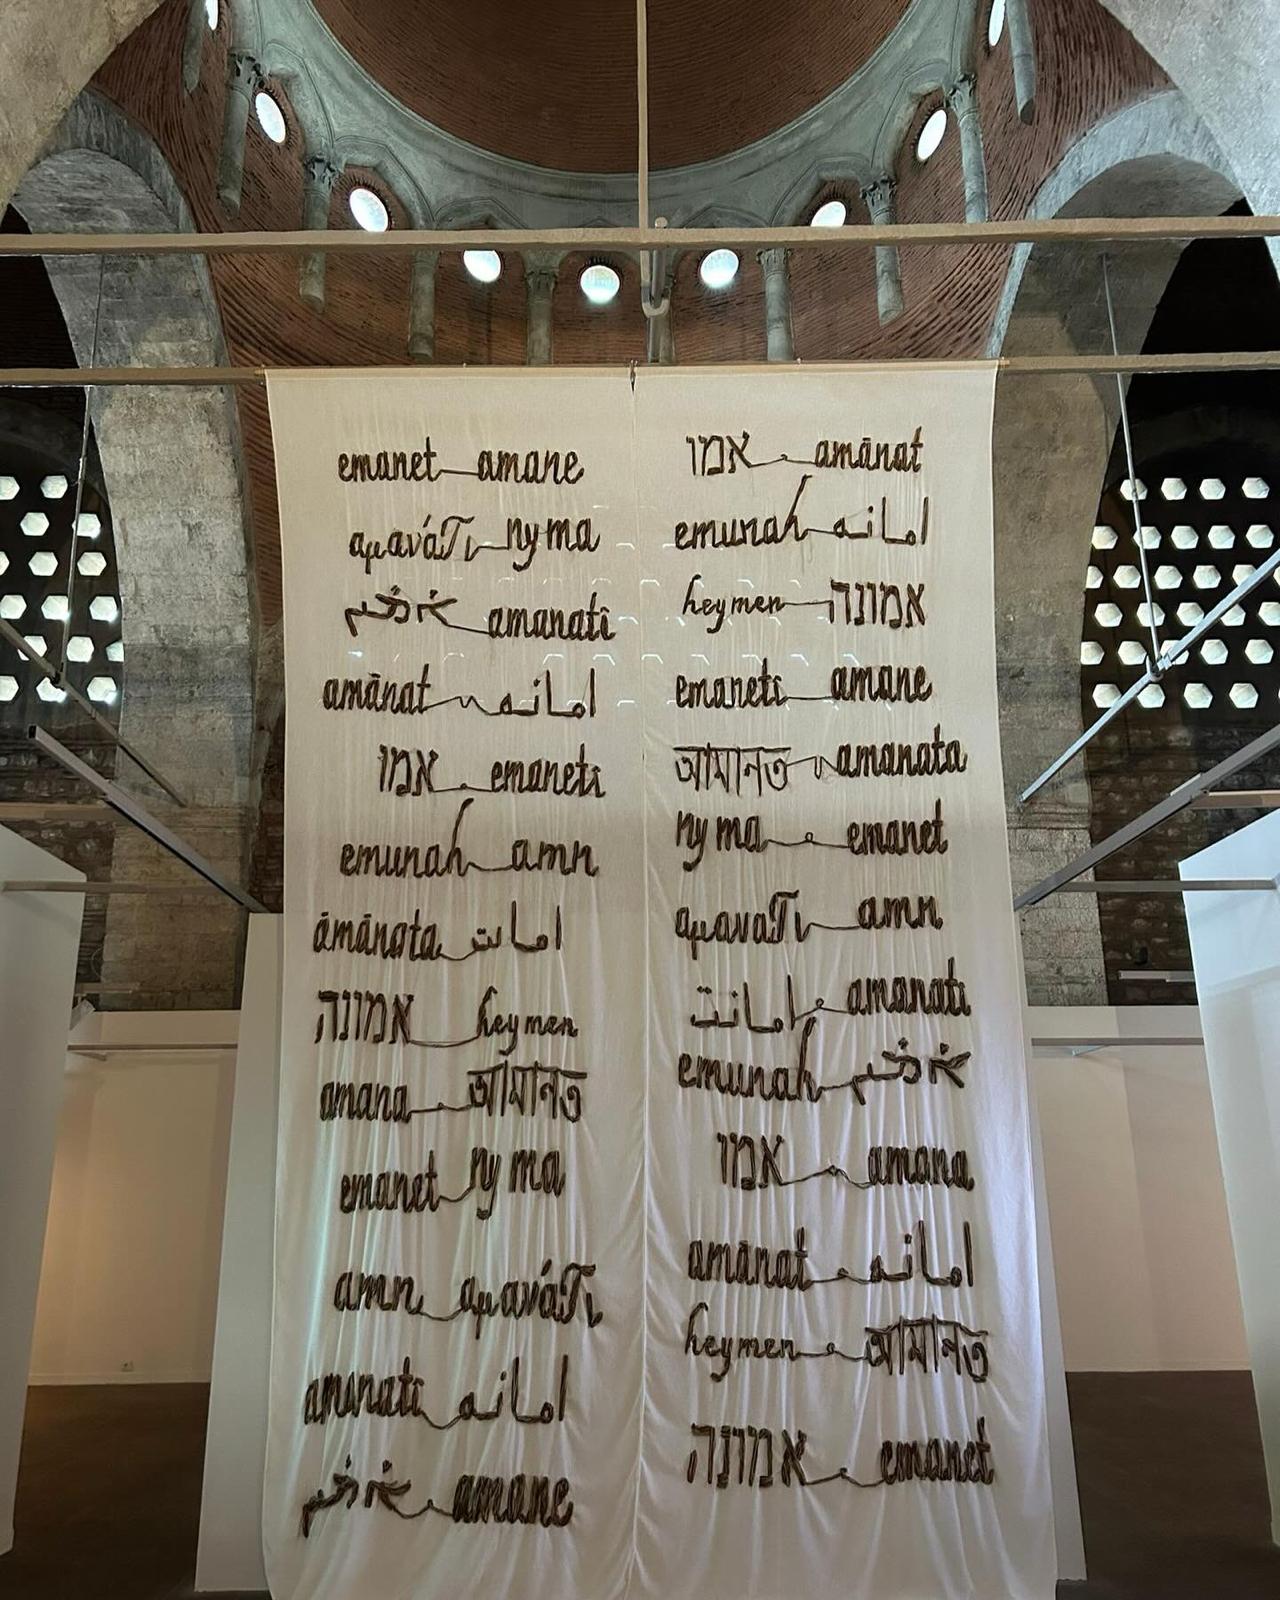 emanet amane
αμανάτι ny ma
amanati
amānat امانه
אמן emaneti
emunah amn
āmānata امانت
אמונה heymen
amana আমানত
emanet ny ma
amn αμανάτι
amanati امانه
amane
אמן amānat
emunah امانه
heymen אמונה
emaneti amane
আমানত amanata
ny ma emanet
αμανατι amn
امانت amanati
emunah
אמן amana
amānat امانه
heymen আমানত
אמונה emanet